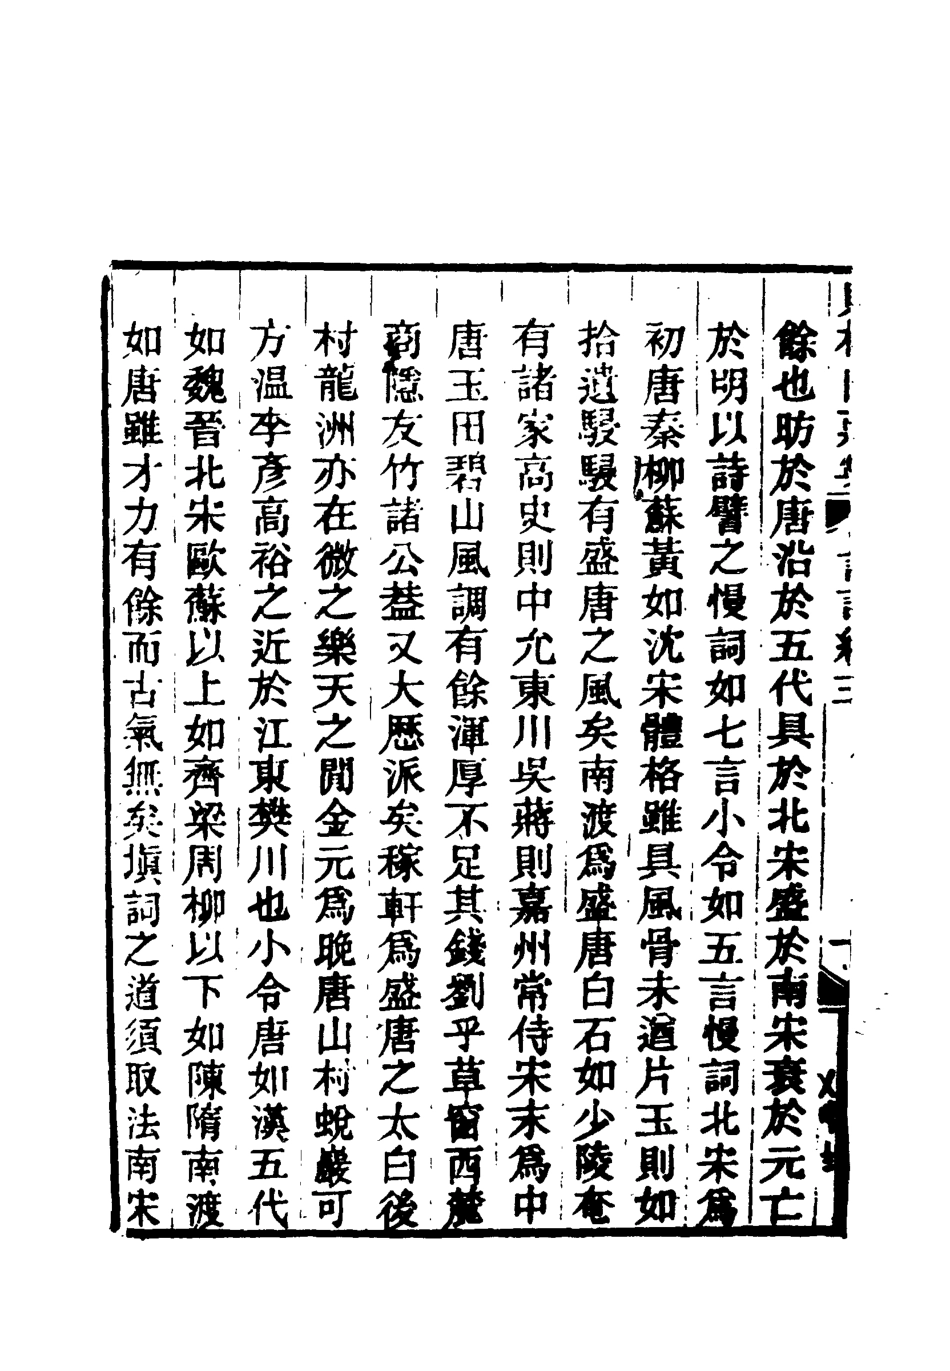 餘也昉於唐沿於五代具於北宋盛於南宋衰於元亡
於明以詩譬之慢詞如七言小令如五言慢詞北宋爲
初唐秦柳蘇黃如沈宋體格雖具風骨未遒片玉則如
拾遺駸駸有盛唐之風矣南渡爲盛唐白石如少陵奄
有諸家高史則中允東川吳蔣則嘉州常侍宋末爲中
唐玉田碧山風調有餘渾厚不足其錢劉乎草窗西麓
商隱友竹諸公葢又大歷派矣稼軒爲盛唐之太白後
村龍洲亦在微之樂天之閒金元爲晚唐山村蛻巖可
方温李彥高裕之近於江東樊川也小令唐如漢五代
如魏晉北宋歐蘇以上如齊梁周柳以下如陳隋南渡
如唐雖才力有餘而古氣無矣塡詞之道須取法南宋